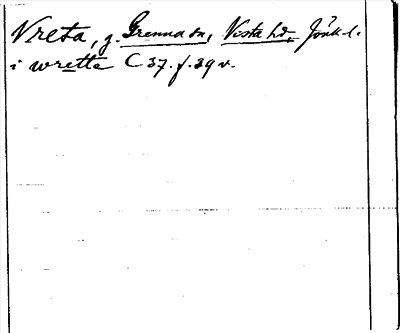 Vreta, g. Grenna sn, Vista hd, Jönk. l.
i wrette C 37. f. 39 v.